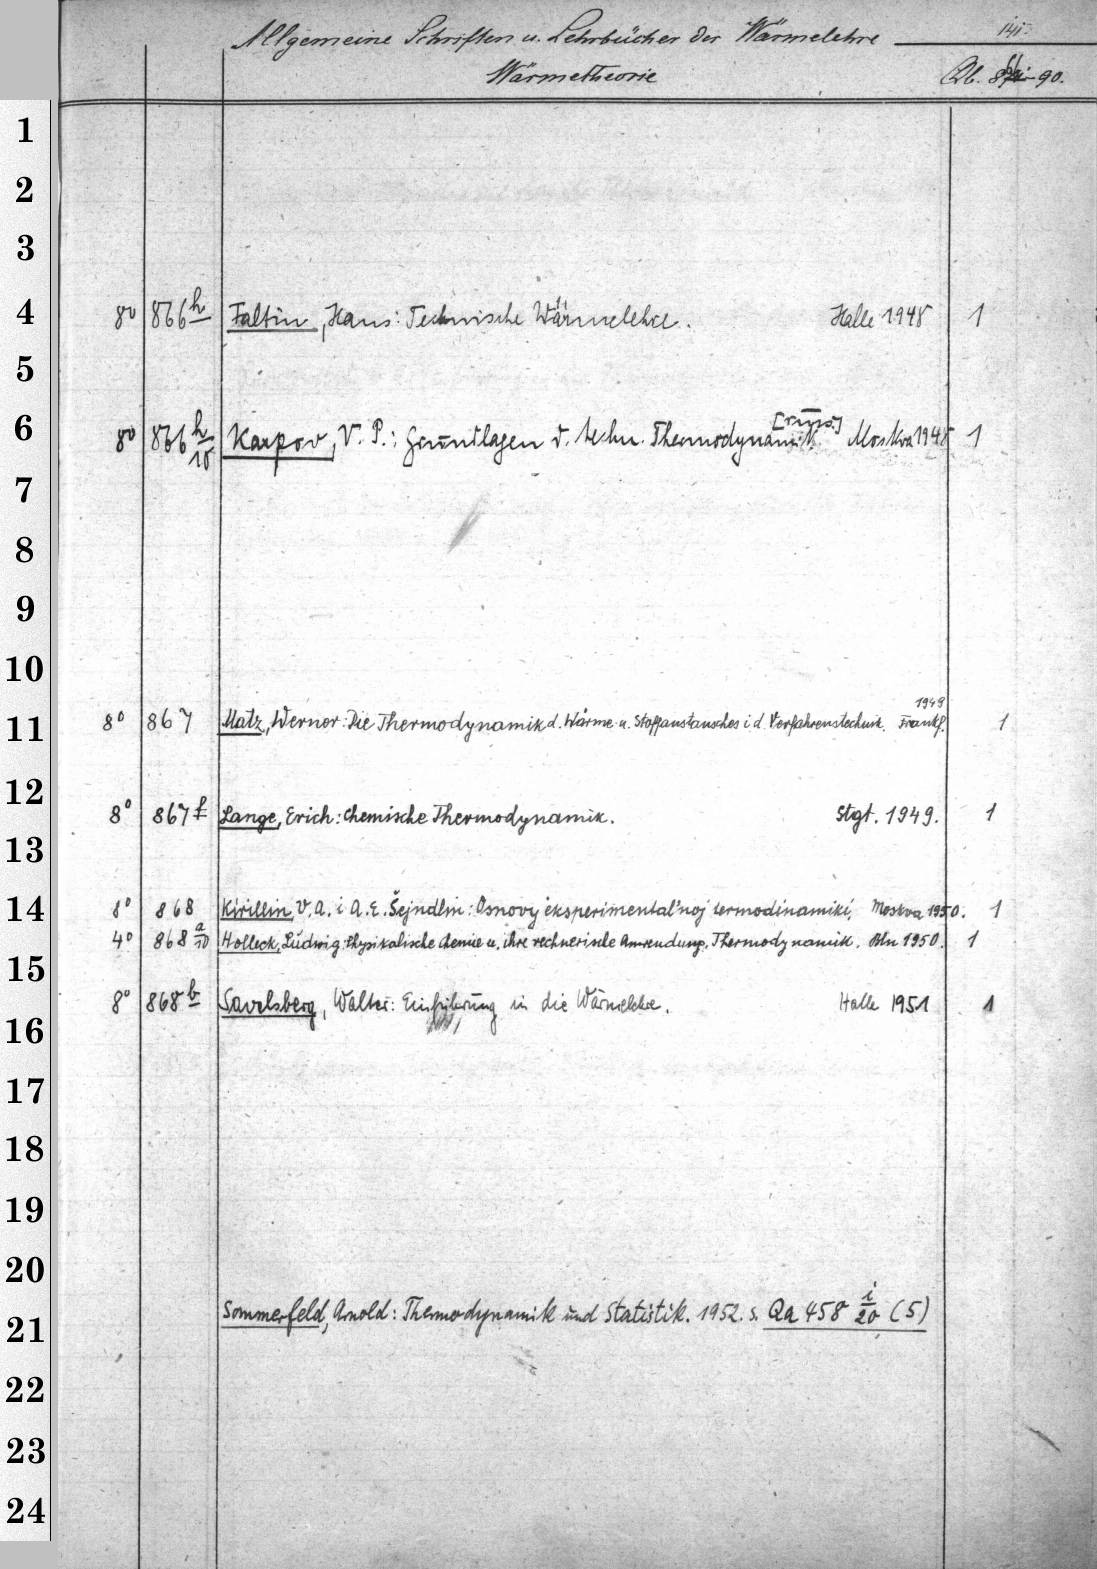 Allgemeine Schriften u. Lehrbücher der Wärmelehre
Wärmetheorie
Qb. 90.
1
2
3
4 8° 866 h Faltin, Hans: Technische Wärmelehre. Halle 1948 1
5
[russ.]
6 8° 866 h/10 Karpov, V. P.: Grundlagen d. techn. Thermodynamik Moskva 1948 1
7
8
9
10
1949
11 8° 867 Matz, Werner: Die Thermodynamik d. Wärme- u. Stoffaustausches i. d. Verfahrenstechnik. Frankf. 1
12
8° 867 f Lange, Erich: Chemische Thermodynamik. Stgt. 1949. 1
13
14 8° 868 Kirillin, V. A. i A. E. Šejndlin: Osnovy eksperimental'noj termodinamiki, Moskva 1950. 1
4° 868 a/10 Holleck, Ludwig: Physikalische Chemie u. ihre rechnerische Anwendung. Thermodynamik. Bln 1950. 1
15
8° 868 b Savelsberg, Walter: Einführung in die Wärmelehre. Halle 1951 1
16
17
18
19
20
21 Sommerfeld, Arnold: Thermodynamik und Statistik. 1952. s. Qa 458 i/20 (5)
22
23
24